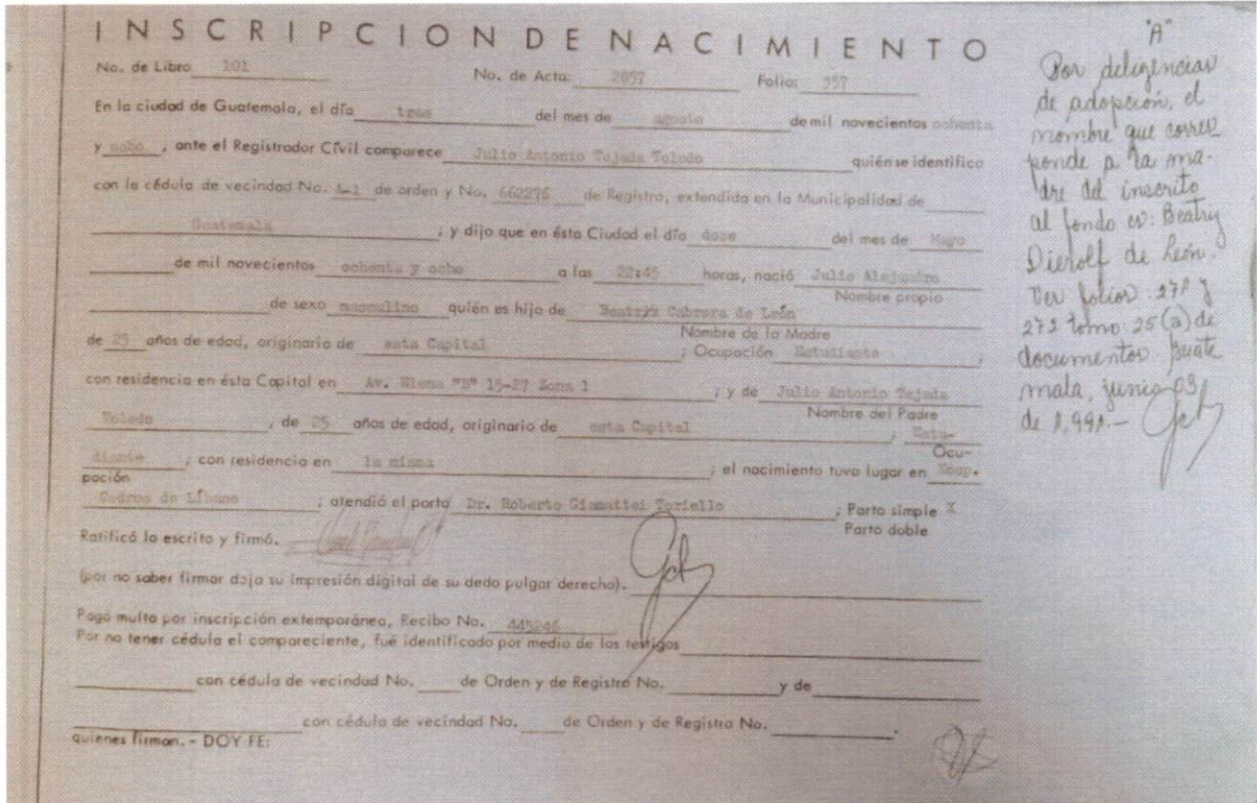 INSCRIPCION DE NACIMIENTO
No. de Libro 101 No. de Acta: 2057 Folio: 357
En la ciudad de Guatemala, el día tres del mes de agosto de mil novecientos ochenta
y ocho, ante el Registrador Civil comparece Julio Antonio Tejada Toledo quién se identifica
con la cédula de vecindad No. A-1 de orden y No. 662275 de Registro, extendida en la Municipalidad de
Guatemala ; y dijo que en ésta Ciudad el día doce del mes de Mayo
de mil novecientos ochenta y ocho a las 22:45 horas, nació Julio Alejandro
Nombre propio
de sexo masculino quién es hijo de Beatriz Cabrera de León
Nombre de la Madre
de 25 años de edad, originario de esta Capital ; Ocupación Estudiante ;
con residencia en ésta Capital en Av. Elena "B" 15-27 Zona 1 ; y de Julio Antonio Tejada
Nombre del Padre
Toledo , de 25 años de edad, originario de esta Capital ; Estu-
Ocu-
diante ; con residencia en la misma ; el nacimiento tuvo lugar en Hosp.
pación
Cedros de Líbano ; atendió el parto Dr. Roberto Giamattei Toriello ; Parto simple X
Parto doble
Ratificó lo escrito y firmó.
(por no saber firmar deja su impresión digital de su dedo pulgar derecho).
Pagó multa por inscripción extemporánea, Recibo No. 445246
Por no tener cédula el compareciente, fué identificado por medio de los testigos
con cédula de vecindad No. de Orden y de Registro No. y de
con cédula de vecindad No. de Orden y de Registro No. .
quienes firman. - DOY FE:
"A"
Por diligencias
de adopción, el
nombre que corres
ponde a la ma-
dre del inscrito
al fondo es: Beatriz
Dierolf de León.
Ver folios: 271 y
272 tomo 25(a) de
documentos. Guate
mala, junio 03
de 1,991.-